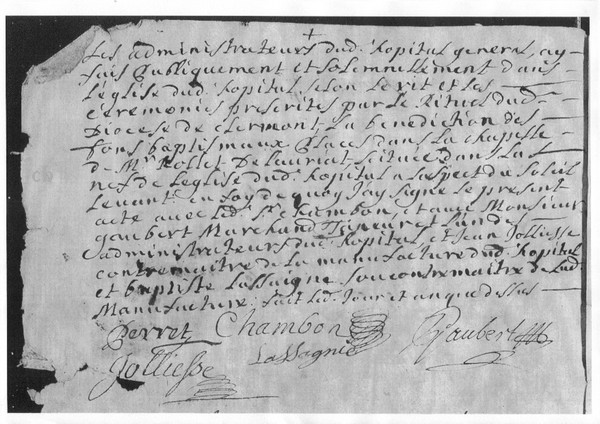 Les administrateurs dud. hopital general, ay
fait Publiquement et solemnellement dans
L'eglise dud. hopital selon Le rit et Les
ceremonies prescrites par Le Rituel dud.
Diocese de clermont, La benediction des
fons baptismaux Places dans La chapelle
de Mr. Rollet De Lauriat, scituée dans La
nef de L'eglise dud. hopital a L'aspect du soleil
Levant, en foy de quoy J'ay signe le present
acte avec led. Sr. chambon, et avec Monsieur
gaubert Marchand L'un des
administrateurs dud. hopital, et Jean Jolliesse
contremaitre de La manufacture dud. hopital
et baptiste Lassaigne soucontremaitre de Lad.
Manufacture, fait led. Jour et an que dessus
Perret Chambon Gaubert
Jolliesse Lassagne